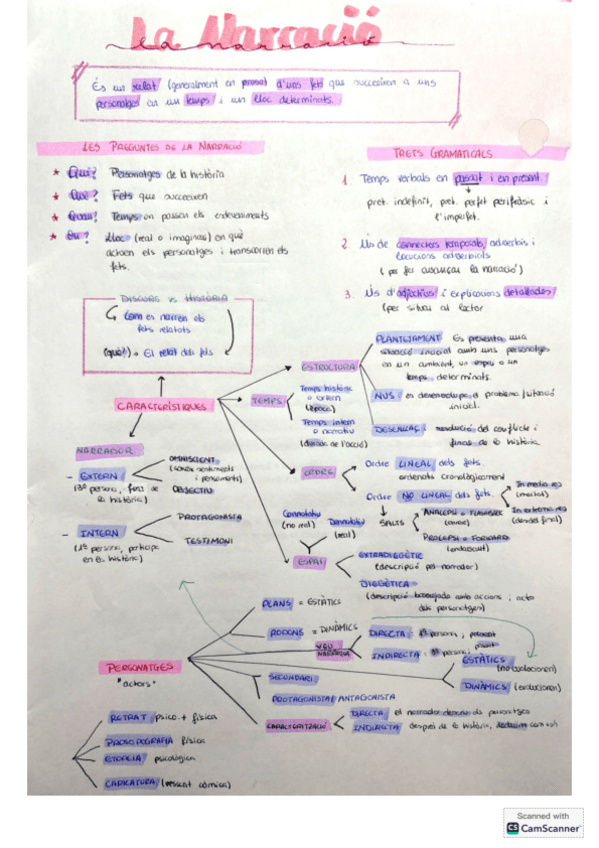 La Narració
És un relat (generalment en prosa) d'uns fets que succeeixen a uns
personatges en un temps i un lloc determinats.
LES PREGUNTES DE LA NARRACIÓ
Qui? Personatges de la història
Què? Fets que succeeixen
Quan? Temps on passen els esdeveniments
On? Lloc (real o imaginari) en què
actuen els personatges i transcorren els
fets.
TRETS GRAMATICALS
1. Temps verbals en passat i en present.
pret. indefinit, pret. perfet perifràstic i
l'imperfet.
2. Ús de connectors temporals, adverbis i
locucions adverbials
(per fer avançar la narració)
3. Ús d'adjectius i explicacions detallades
(per situar al lector
DISCURS VS. HISTÒRIA
Com es narren els
fets relatats
(què?) → El relat dels fets
CARACTERÍSTIQUES
ESTRUCTURA
PLANTEJAMENT Es presenta una
situació inicial amb uns personatges
en un ambient, un espai o un
temps determinats.
NUS: es desenvolupa el problema/situació
inicial.
DESENLLAÇ: resolució del conflicte i
final de la història.
TEMPS
Temps històric
o extern
(època)
Temps intern
o narratiu
(durada de l'acció)
NARRADOR
- EXTERN
(3ª persona, fora de
la història)
OMNISCIENT
(coneix sentiments
i pensaments)
OBJECTIU
- INTERN
(1ª persona, participa
en la història)
PROTAGONISTA
TESTIMONI
ORDRE
Ordre LINEAL dels fets.
ordenats cronològicament
Ordre NO LINEAL dels fets.
In media res
(meitat)
In extrema res
(des del final)
SALTS
ANALEPSI = FLASHBACK
PROLEPSI = FORWARD
ESPAI
Connotatiu
(no real)
Denotatiu
(real)
EXTRADIEGÈTIC
(descripció pel narrador)
DIEGÈTICA
(descripció barrejada amb accions i actes
dels personatges)
PERSONATGES
"actors"
PLANS = ESTÀTICS
RODONS = DINÀMICS
VEU
NARRATIVA
DIRECTA: persona i present
INDIRECTA: persona i
ESTÀTICS
(no evolucionen)
DINÀMICS (evolucionen)
SECUNDARI
PROTAGONISTA/ANTAGONISTA
CARACTERITZACIÓ
DIRECTA el narrador descriu els personatges
INDIRECTA després de la història, deduïm com són
RETRAT psico. + física
PROSOPOGRAFIA física
ETOPEIA psicològica
CARICATURA (ressalt còmica)
Scanned with
CS CamScanner